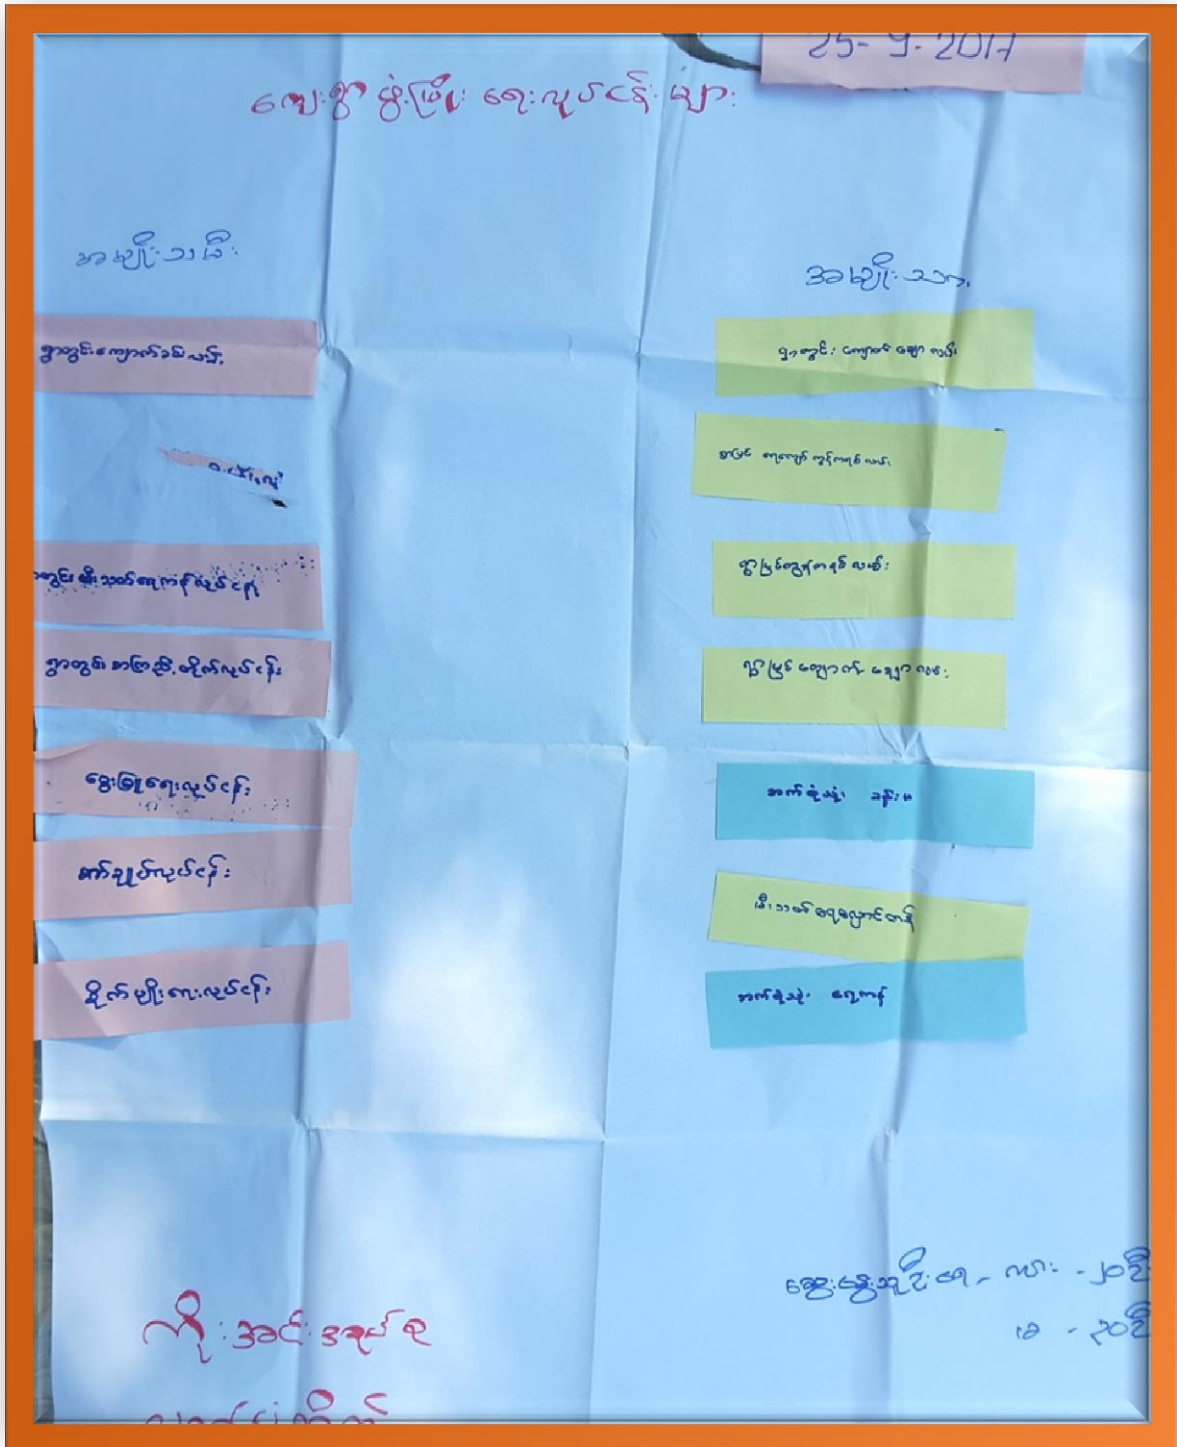 25-9-2017
ကျေးရွာ ဖွံ့ဖြိုး ရေးလုပ်ငန်း များ
အမျိုးသမီး
ရွာတွင်းကျောက်ခင်းလမ်း
တွင်း မီးသတ်ရေကန်လုပ်ငန်း
ရွာတွင်း စာကြည့်တိုက်လုပ်ငန်း
မွေးမြူရေးလုပ်ငန်း
စက်ချုပ်လုပ်ငန်း
စိုက်ပျိုးရေးလုပ်ငန်း
အမျိုးသား
ရွာတွင်း ကျောက်ချောလမ်း
ရွာပြင် ရေကျော်ကွန်ကရစ်လမ်း
ရွာပြင်ကွန်ကရစ်လမ်း
ရွာပြင် ကျောက်ချောလမ်း
ဘက်စုံသုံး ခန်းမ
မီးသတ်ရေလှောင်ကန်
ဘက်စုံသုံး ရေကန်
ဆွေးနွေးသူဦးရေ - ကျား - ၂၀ ဦး
မ - ၃၀ ဦး
ကိုးအင်းအုပ်စု